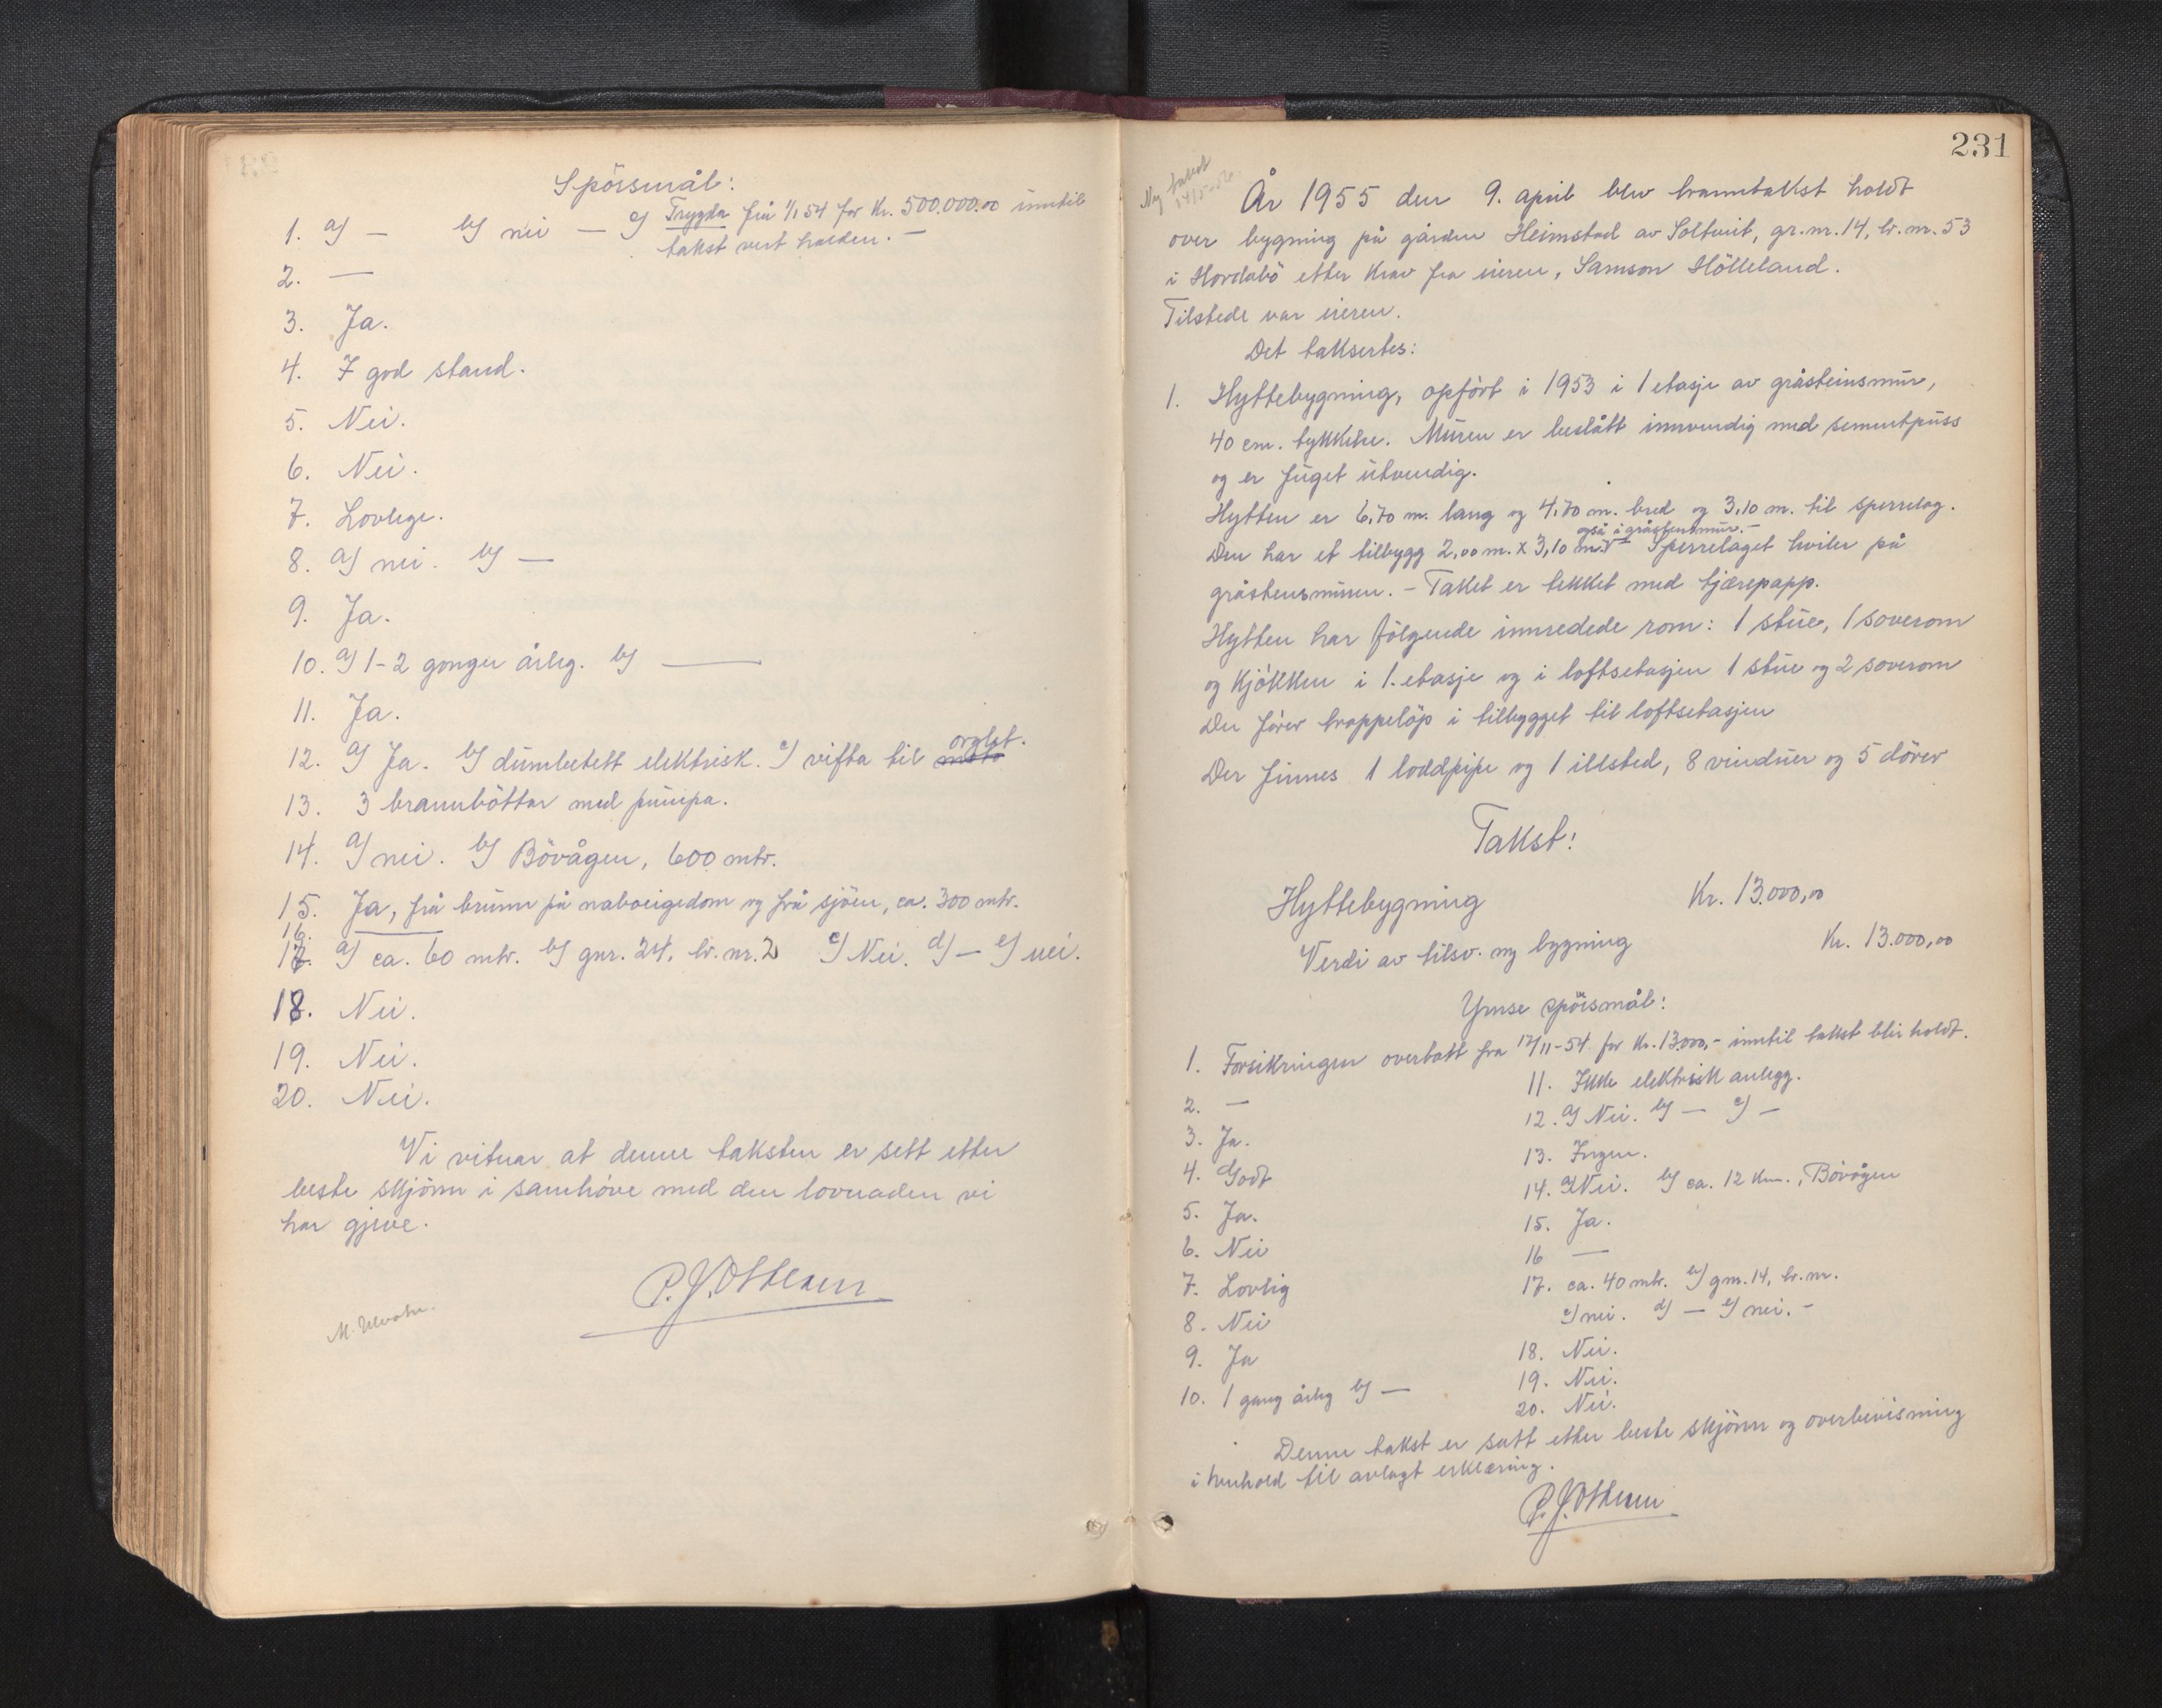 Spörsmål:
1. a) — b) nei — c) Trygda frå 1/1 54 for kr. 500.000.00 inntil
takst vert halden. —
2. —
3. Ja.
4. I god stand.
5. Nei.
6. Nei.
7. Lovlege.
8. a) nei. b) —
9. Ja.
10. a) 1-2 gonger årleg. b) —
11. Ja.
12. a) Ja. b) dumbetett elektrisk. c) vifta til orglet.
13. 3 brannböttar med pumpa.
14. a) nei. b) Bövågen, 600 mtr.
15. Ja, frå brunn på naboeigedom og frå sjöen, ca. 300 mtr.
16. —
17. a) ca. 60 mtr. b) gnr. 24, br. nr. 2 c) Nei. d) — e) nei.
18. Nei.
19. Nei.
20. Nei.
Vi vitnar at denne taksten er sett etter
beste skjönn i samhöve med den lovnaden vi
har gjeve.
P. J. Othesen
231
Ny takst
År 1955 den 9. april blev branntakst holdt
over bygning på gården Heimstad av Soltveit, gr. nr. 14, br. nr. 53
i Hordabö etter krav fra eieren, Samson Hölleland.
Tilstede var eieren.
Det taksertes:
1. Hyttebygning, opfört i 1953 i 1 etasje av gråsteinsmur,
40 cm. tykkelse. Muren er beslått innvendig med sementpuss
og er fuget utvendig.
Hytten er 6,70 m. lang og 4,70 m. bred og 3,10 m. til sperrelag.
også i gråstensmur. —
Den har et tilbygg 2,00 m. x 3,10 m. Sperrelaget hviler på
gråstensmuren. — Taket er tekket med tjærepapp.
Hytten har fölgende innredede rom: 1 stue, 1 soverom
og kjökken i 1. etasje og i loftsetasjen 1 stue og 2 soverom
Der förer trappelöp i tilbygget til loftsetasjen
Der finnes 1 loddpipe og 1 illsted, 8 vinduer og 5 dörer
Takst:
Hyttebygning Kr. 13.000,00
Verdi av tilsv. ny bygning Kr. 13.000,00
Ymse spörsmål:
1. Forsikringen overtatt fra 12/11-54 for kr. 13.000,- inntil takst blir holdt.
2. —
3. Ja.
4. Godt
5. Ja.
6. Nei
7. Lovlig
8. Nei
9. Ja
10. 1 gang årleg b) —
11. Ikke elektrisk anlegg.
12. a) Nei. b) — c) —
13. Ingen.
14. a) Nei. b) ca. 12 km., Bövågen
15. Ja.
16 —
17. ca. 40 mtr. b) gnr. 14, br. nr.
c) nei. d) — e) nei. -
18. Nei.
19. Nei.
20. Nei.
Denne takst er satt etter beste skjönn og overbevisning
i henhold til avlagt erklæring.
P. J. Othesen